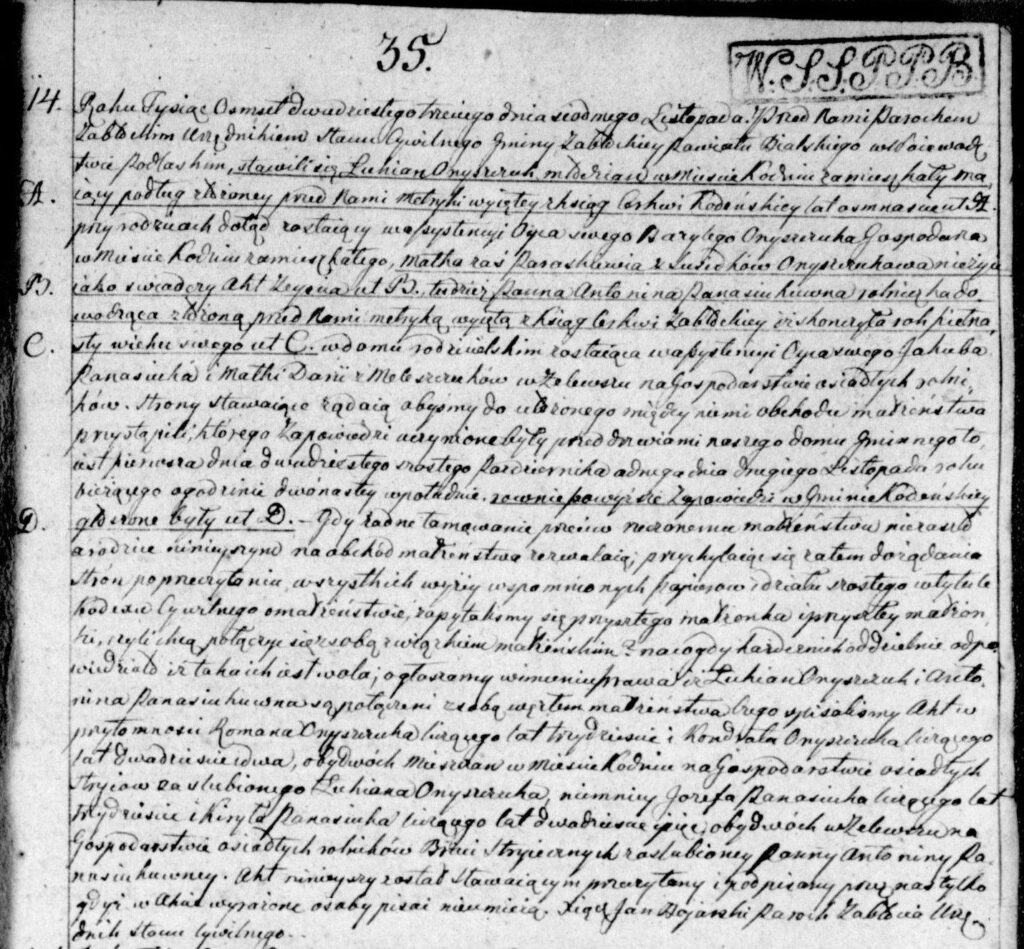 35.
W.S.S.P.P.B
14. Roku Tysiąc Osmset dwadziestego trzeciego dnia siodmego Listopada. Przed Nami Parochem
Zabłockim Urzędnikiem stanu Cywilnego Gminy Zabłockiey Powiatu Bialskiego w Woiewodz
twie Podlaskim, stawili się Łukian Onyszczuk młodzian w Mieście Kodniu zamieszkały ma,
A. iący podług złożoney przed Nami Metryki wyiętey z ksiąg Cerkwi Kodeńskiey lat osmnaście ut A.
przy rodzicach dotąd zostaiący w assystencyi Oyca swego Bazylego Onyszczuka Gospodarza
w Mieście Kodniu zamieszkałego, matka zaś Paraskiewia z Onyszczukowa nieżyie
B. iako świadczy Akt Zeyścia ut B. tudzież Panna Antonina Panasiukówna rolniczka do,
wodząca złożoną przed Nami metryką wyiętą z ksiąg Cerkwi Zabłockiey iż skończyła rok piętna,
C. sty wieku swego ut C. w domu rodzicielskim zostaiąca w assystencyi Oyca swego Jakuba
Panasiuka i Matki Darii z Meleszczuków w Zelewszu na Gospodarstwie osiadłych rolni,
ków. Strony stawaiące żądaią abyśmy do ułożonego między niemi obchodu małżeństwa
przystąpili, którego Zapowiedzi uczynione były przed drzwiami naszego domu Gminnego to
iest pierwsza dnia dwudziestego szostego Pazdziernika a druga dnia drugiego Listopada roku
bieżącego o godzinie dwónastey w południe. rownie powyższe Zapowiedzi w Gminie Kodeńskiey
D. głoszone były ut D. – Gdy żadne tamowanie przeciw rzeczonemu małżeństwu nie zaszło
a rodzice ninieyszym na obchód małżeństwa zezwalaią, przychylaiąc się zatem do żądania
stron po przeczytaniu wszystkich wyżey wspomnionych papierow i działu szostego w tytule
kodexu Cywilnego o małżeństwie, zapytaliśmy się przyszłego małżonka i przyszłey małżon
ki, czyli chcą połączyć się z sobą związkiem małżeńskim? na co gdy każde z nich oddzielnie odpo,
wiedziało iż taka ich iest wola, ogłaszamy w imieniu prawa iż Łukian Onyszczuk i Anto,
nina Panasiukówna są połączeni z sobą węzłem małżeństwa. Czego spisaliśmy Akt w
przytomności Romana Onyszczuka liczącego lat trzydzieści i Kondrata Onyszczuka liczącego
lat dwadzieścia dwa, obydwóch Mieszczan w Mieście Kodniu na Gospodarstwie osiadłych
stryiow zaślubionego Łukiana Onyszczuka, niemniey Jozefa Panasiuka liczącego lat
trzydzieści i Kiryła Panasiuka liczącego lat dwadzieścia pięć, obydwóch w Zelewszu na
Gospodarstwie osiadłych rolników Braci Stryiecznych zaślubioney Panny Antoniny Pa,
nasiukówney. Akt ninieyszy został stawaiącym przeczytany i podpisany przez nas tylko
gdyż w Akcie wyrażone osoby pisać nieumieią. Xiądz Jan Bojarski Paroch Zabłocia Urzę,
dnik stanu Cywilnego.